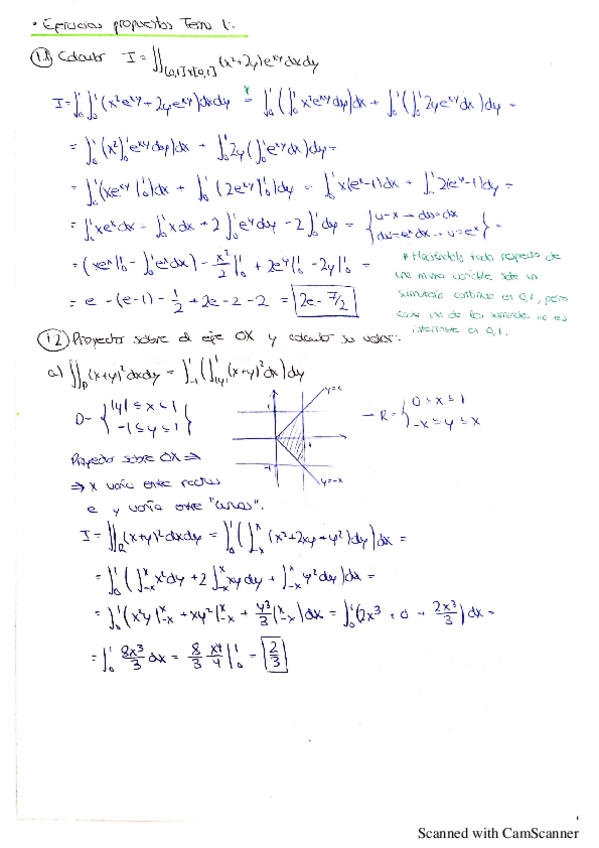 • Ejercicios propuestos Tema 1:
1.1 Calcular I = ∬_{[0,1]×[0,1]} (x²+2y)e^{xy} dxdy
I = ∫₀¹∫₀¹ (x²e^{xy} + 2ye^{xy})dxdy =* ∫₀¹(∫₀¹ x²e^{xy}dy)dx + ∫₀¹(∫₀¹ 2ye^{xy}dx)dy =
= ∫₀¹(x²∫₀¹e^{xy}dy)dx + ∫₀¹2y(∫₀¹e^{xy}dx)dy =
= ∫₀¹(xe^{xy}|₀¹)dx + ∫₀¹(2e^{xy}|₀¹)dy = ∫₀¹x(eˣ-1)dx + ∫₀¹2(e^y-1)dy =
= ∫₀¹xeˣdx - ∫₀¹xdx + 2∫₀¹e^ydy - 2∫₀¹dy = {u=x → du=dx
dv=eˣdx → v=eˣ} =
= (xeˣ|₀¹ - ∫₀¹eˣdx) - x²/2|₀¹ + 2e^y|₀¹ - 2y|₀¹ =
= e - (e-1) - 1/2 + 2e - 2 - 2 = 2e - 7/2
* Haciéndolo todo respecto de
una misma variable sale un
sumatorio continuo en 0,1, pero
cada uno de los sumandos no es
integrable en 0,1.
1.2 Proyectar sobre el eje OX y calcular su valor:
a) ∬_D (x+y)²dxdy = ∫₋₁¹(∫_{|y|}¹(x+y)²dx)dy
D = {|y| ≤ x ≤ 1
-1 ≤ y ≤ 1}
y=x
1
-1
y=-x
→ R = {0 ≤ x ≤ 1
-x ≤ y ≤ x
Proyectar sobre OX ⇒
⇒ x varía entre rectas
e y varía entre "curvas".
I = ∬_R (x+y)²dxdy = ∫₀¹(∫₋ₓˣ(x²+2xy+y²)dy)dx =
= ∫₀¹(∫₋ₓˣx²dy + 2∫₋ₓˣxydy + ∫₋ₓˣy²dy)dx =
= ∫₀¹(x²y|₋ₓˣ + xy²|₋ₓˣ + y³/3|₋ₓˣ)dx = ∫₀¹(2x³ + 0 + 2x³/3)dx =
= ∫₀¹ 8x³/3 dx = 8/3 x⁴/4|₀¹ = 2/3
Scanned with CamScanner